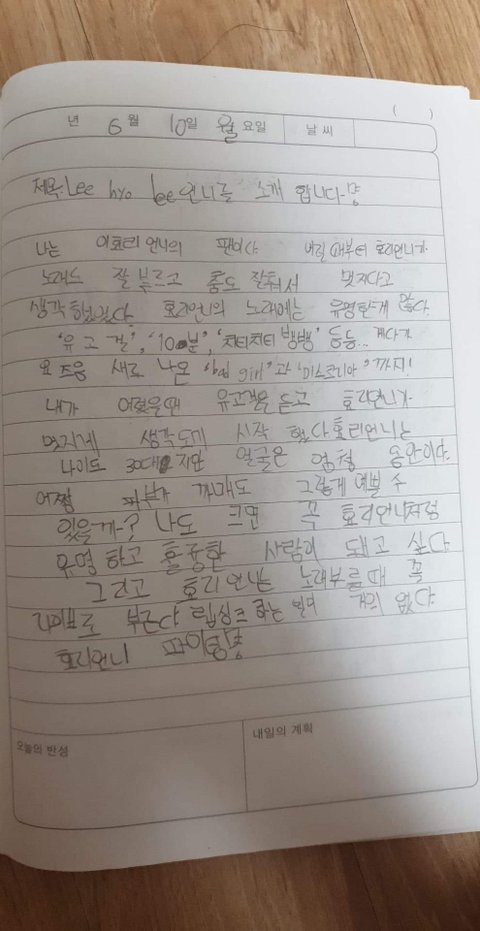 ( )
년 6월 10일 월요일 날씨
제목: Lee hyo lee언니를 소개 합니다-명
나는 이효리 언니의 팬이다. 어릴 때부터 효리언니가
노래도 잘 부르고 춤도 잘춰서 멋지다고
생각 했었다. 효리언니의 노래에는 유명한게 많다.
'유 고 걸', '10분', '치티치티 뱅뱅' 등등... 게다가
요 즈음 새로 나온 'bad girl'과 '미스코리아'까지!
내가 어렸을때 유고걸을 듣고 효리언니가
멋지게 생각되기 시작 했다 효리언니는
나이도 30대 지만 얼굴은 엄청 동안이다.
어쩜 피부가 까매도 그렇게 예쁠 수
있을까? 나도 크면 꼭 효리언니처럼
유명 하고 훌륭한 사람이 돼고 싶다
그리고 효리 언니는 노래부를때 꼭
라이브로 부른다 립싱크 하는 일이 거의 없다.
효리언니 파이팅
오늘의 반성
내일의 계획